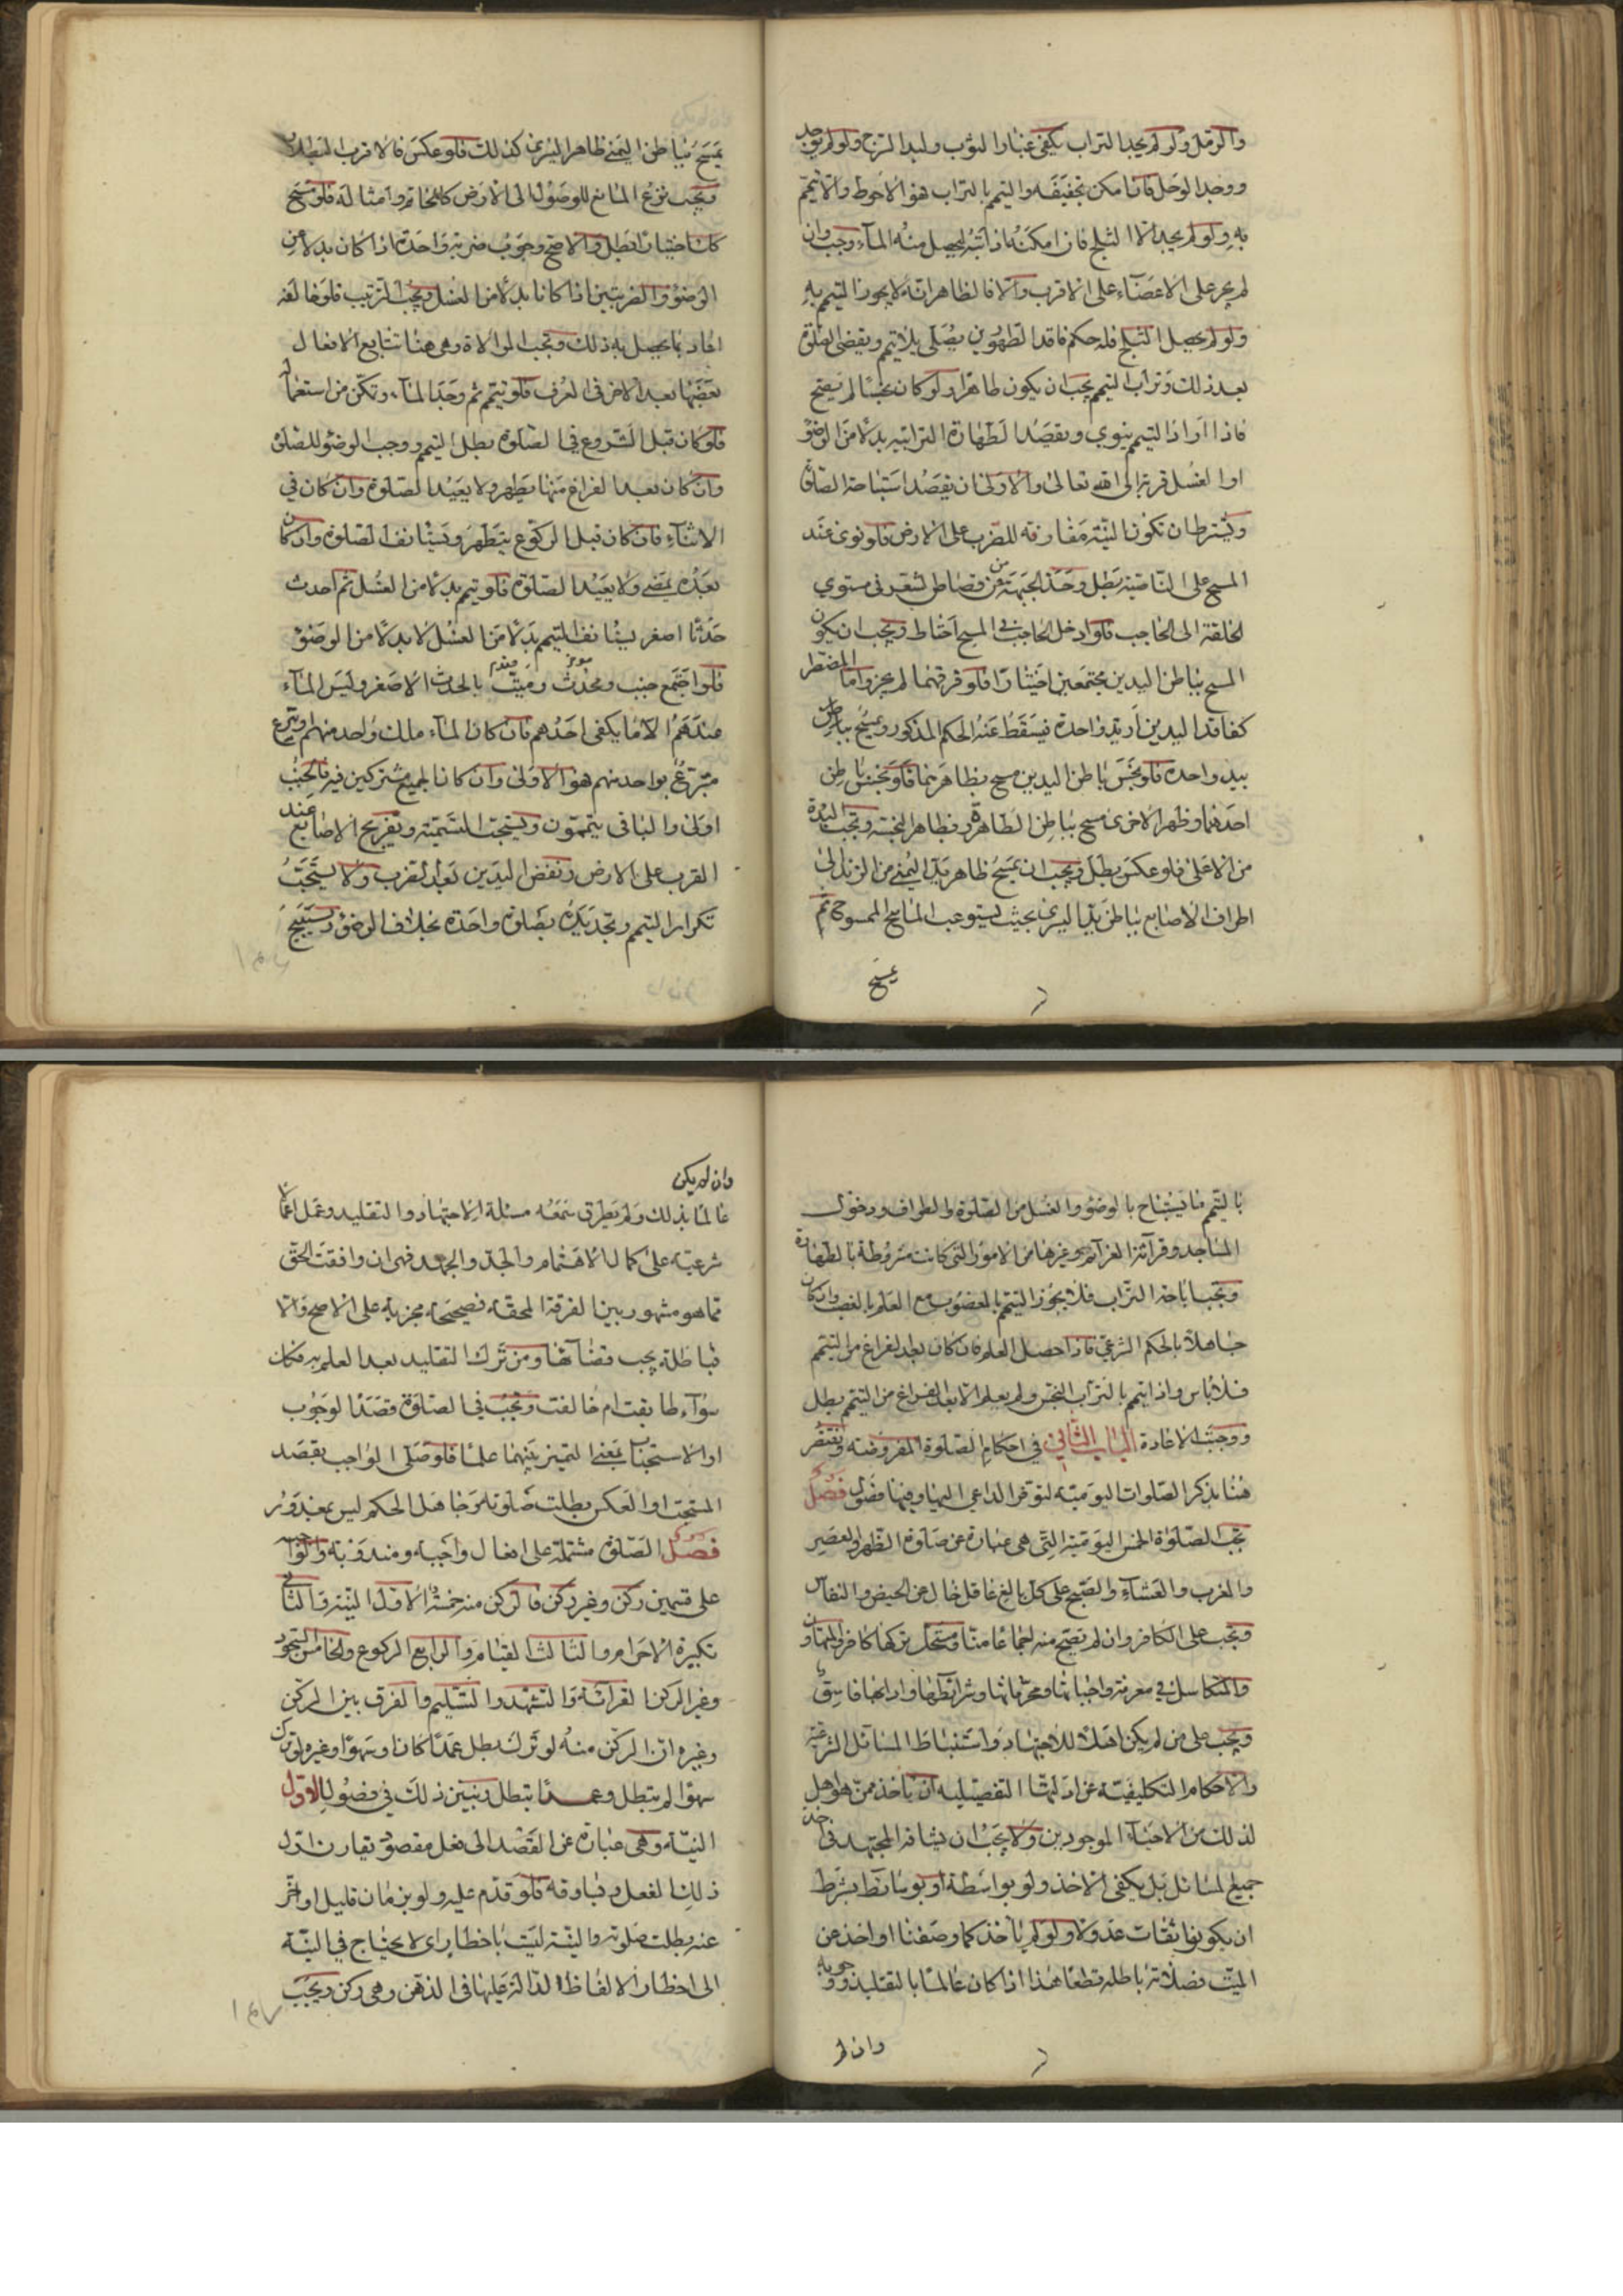 والرمل ولو لم يجد التراب يكفي غبار الثوب ولبد السرج ولو لم يوجد
ووجد الوحل فان امكن تجفيفه والتيمم بالتراب هو الاحوط والا تيمم
به ولو لم يجد الا الثلج فان امكنه اذابته ليحصل منه الماء وجب وان
لم يجر على الاعضاء على الاقرب والا فالظاهر انه لا يجوز التيمم به
ولو لم يحصل الثلج فله حكم فاقد الطهورين يصلى بلا تيمم ويقضى الصلوة
بعد ذلك وتراب التيمم يجب ان يكون طاهرا ولو كان نجسا لم يصح
فاذا اراد التيمم ينوي ويقصد الطهارة الترابيه بدلا من الوضوء
او الغسل قربة الى الله تعالى والاولى ان يقصد استباحة الصلوة
ويشترط ان تكون النية مقارنه للضرب على الارض فلو نوى عند
المسح على الناصية بطل وحد الجبهة من قصاص الشعر فى مستوي
الخلقة الى الحاجب فلو ادخل الحاجب في المسح احتاط ويجب ان يكون
المسح بباطن اليدين مجتمعين اختيارا فلو فرقهما لم يجز واما المضطر
كفاقد اليدين او يد واحدة فيسقط عنه الحكم المذكور ويمسح بباطن
بيد واحدة فلو نجس باطن اليدين مسح بظاهرهما فلو نجس باطن
احدهما وظهر الاخرى مسح بباطن الطاهرة وبظاهر النجسة ويجب البدءة
من الاعلى فلو عكس بطل ويجب ان يمسح ظاهر يد اليمنى من الزند الى
اطراف الاصابع بباطن يد اليسرى بحيث يستوعب الماسح الممسوح ثم
يمسح
يمسح بباطن اليمنى ظاهر اليسرى كذلك فلو عكس فالاقرب البطلان
ويجب نزع المانع للوصول الى الارض كالخاتم وامثاله فلو مسح
كان اختيارا بطل والاصح وجوب ضربة واحدة اذا كان بدلا من
الوضوء والضربتين اذا كانا بدلا من الغسل ويجب الترتيب فلو خالفه
اعاد بما يحصل به ذلك وتجب الموالاة وهى هنا تتابع الافعال
بعضها بعد الاخر فى العرف فلو تيمم ثم وجد الماء وتمكن من استعماله
فلو كان قبل الشروع في الصلوة بطل التيمم ووجب الوضوء للصلوة
وان كان بعد الفراغ منها يتطهر ولا يعيد الصلوة وان كان في
الاثناء فان كان قبل الركوع يتطهر ويستانف الصلوة وان كان
بعده يمضى ولا يعيد الصلوة فلو تيمم بدلا من الغسل ثم احدث
حدثا اصغر يستانف التيمم بدلا من الغسل لا بدلا من الوضوء
فلو اجتمع جنب ومحدث وميت بالحدث الاصغر وليس الماء
عندهم الا ما يكفى احدهم فان كان الماء ملك واحد منهم او تبرع
متبرع بواحد منهم هو الاولى وان كانا لجميع مشتركين فيه فالجنب
اولى والباقى يتيممون ويستحب التسمية وتفريج الاصابع عند
الضرب على الارض ونفض اليدين بعد الضرب ولا يستحب
تكرار التيمم وتجديده بصلوة واحدة بخلاف الوضوء ويستبيح
بالتيمم ما يستباح بالوضوء والغسل من الصلوة والطواف ودخول
المساجد وقرآئة العزآئم وغيرها من الامور التى كانت مشروطة بالطهارة
ويجب اباحة التراب فلا يجوز التيمم بالمغصوب مع العلم بالغصب وان كان
جاهلا بالحكم الشرعي فاذا حصل العلم فان كان بعد الفراغ من التيمم
فلا باس واذا تيمم بالتراب النجس ولم يعلم الا بعد الفراغ من التيمم بطل
ووجبت الاعادة الباب الثانى في احكام الصلوة المفروضه ونقتصر
هنا بذكر الصلوات اليوميته لتوفر الداعي اليها وفيها فصول فصل
تجب الصلوة الخمس اليومية التى هى عبارة عن صلوة الظهر والعصر
والمغرب والعشاء والصبح على كل بالغ عاقل خال عن الحيض والنفاس
وتجب على الكافر وان لم تصح منه اجماعا منا ومستحل تركها كافر والمتهاون
والمتكاسل في معرفة واجباتها ومحرماتها وشرائطها وادابها فاسق
ويجب على من لم يكن اهلا للاجتهاد واستنباط المسائل الشرعية
والاحكام التكليفية عن ادلتها التفصيليه ان يأخذ ممن هو اهل
لذلك من الاحياء الموجودين ولا يجب ان يشافه المجتهد في اخذ
جميع المسائل بل يكفى الاخذ ولو بواسطة او بوسائط بشرط
ان يكونوا ثقات عدولا ولو لم يأخذ كما وصفنا او اخذ عن
الميت فصلاته باطله قطعا هذا اذا كان عالما بالتقليد ووجوبه
وان لم
وان لم يكن
عالما بذلك ولم يطرق سمعه مسئلة الاجتهاد والتقليد وعمل اعمالا
شرعية على كمال الاهتمام والجد والجهد فهى ان وافقت الحق
مما هو مشهور بين الفرقة المحقة فصحيحة مجزية على الاصح والا
فباطلة يجب قضاؤها ومن ترك التقليد بعد العلم به فكان
سوآء طابقت ام خالفت وتجب في الصلوة قصد الوجوب
او الاستحباب بمعنى التميز بينهما علما فلو صلى الواجب بقصد
المستحب او العكس بطلت صلوته وجاهل الحكم ليس بمعذور
فصل الصلوة مشتملة على افعال واجبة ومندوبة والواجب
على قسمين ركن وغير ركن فالركن منه خمسة الاول النية والثانى
تكبيرة الاحرام والثالث القيام والرابع الركوع والخامس السجود
وغير الركن القرائة والتشهد والتسليم والفرق بين الركن
وغيره ان الركن منه لو ترك بطل عمدا كان او سهوا وغيره لو ترك
سهوا لم يبطل وعمدا يبطل ونبين ذلك في فصول الاول
النية وهى عبارة عن القصد الى فعل مقصود تقارن اول
ذلك الفعل وتساوقه فلو قدم عليه ولو بزمان قليل او اخر
عنه بطلت صلوته والنية ليست باخطار اى لا يحتاج في النية
الى اخطار الالفاظ الدالة عليها في الذهن وهى ركن ويجب